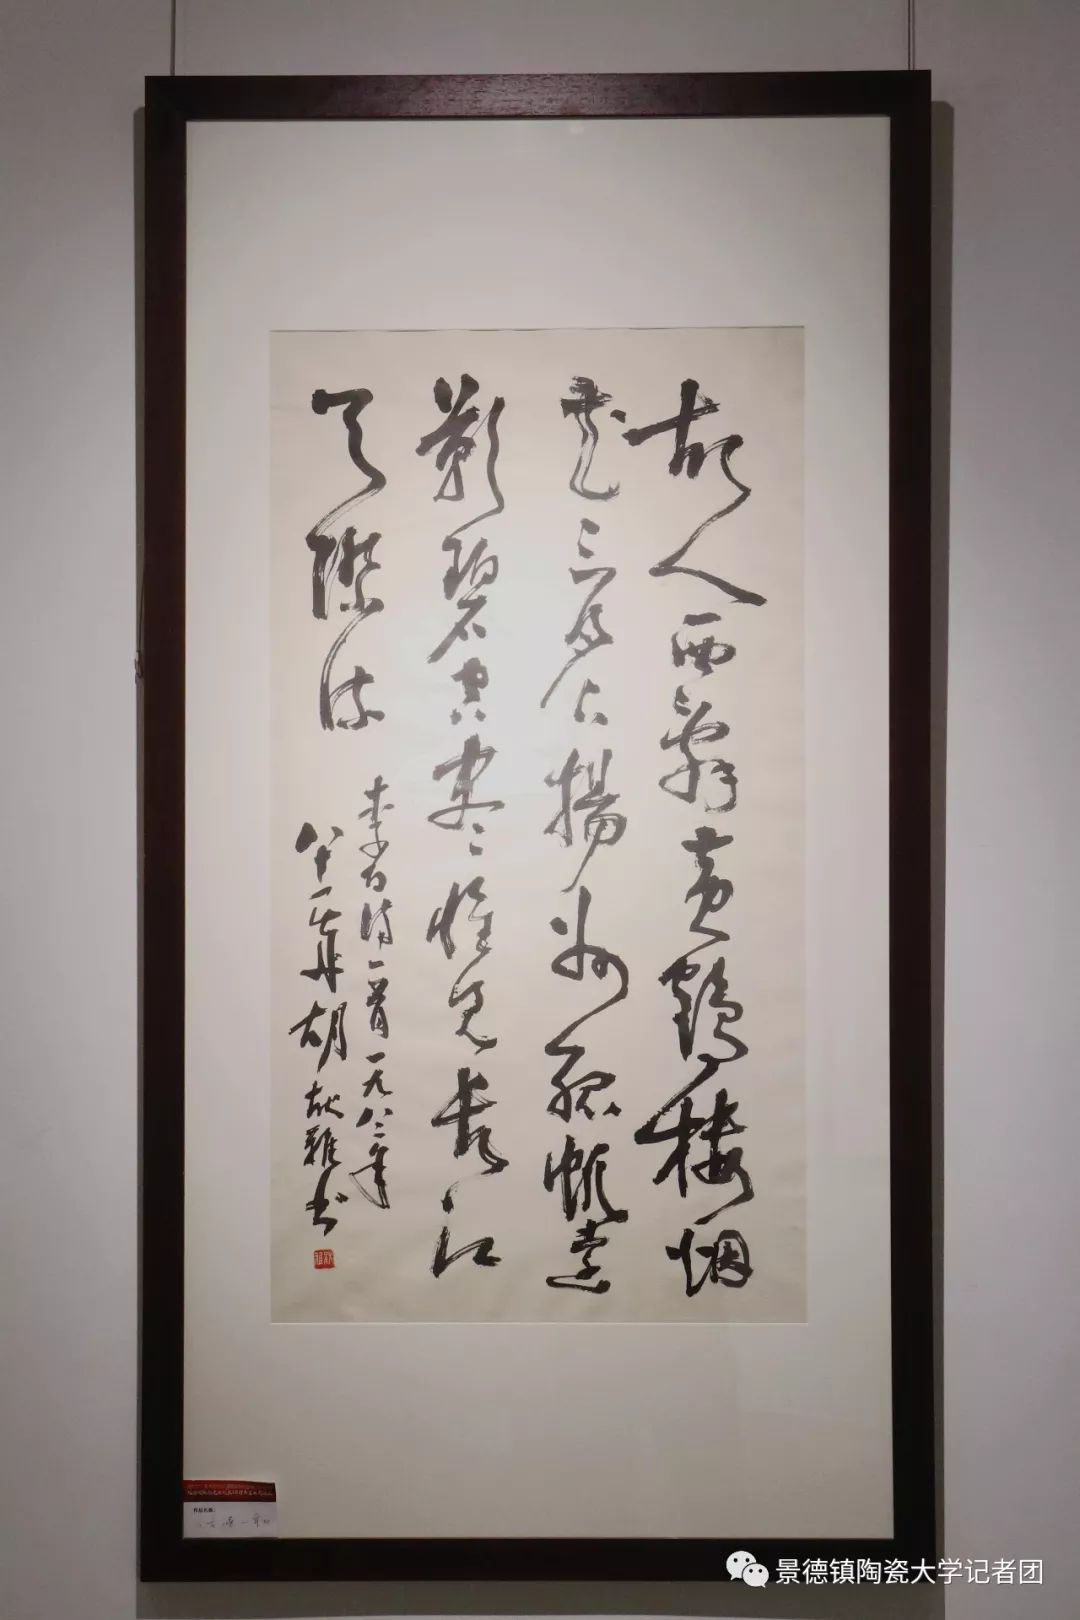 故人西辭黄鶴楼烟
花三月下揚州孤帆遠
影碧空尽惟见長江
天際流
李白诗一首一九八二年
八十一 胡献雅书
作品名称：
景德镇陶瓷大学记者团